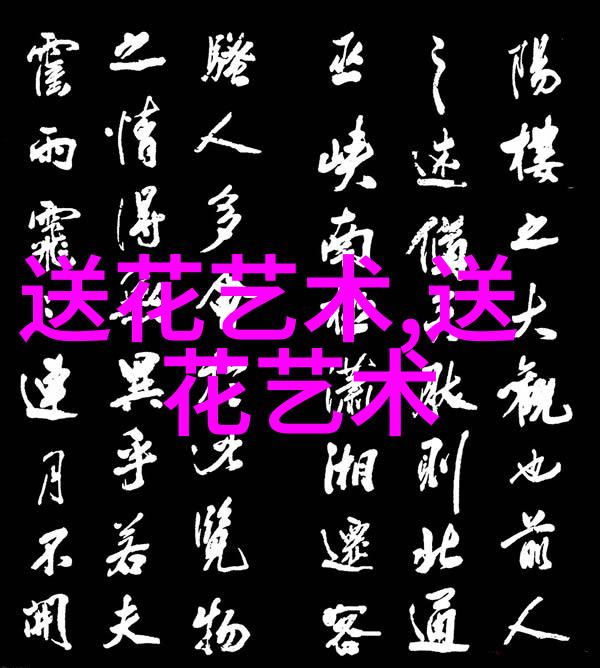 送花艺术,送
花艺术
陽樓之大觀也前人
之述備矣然則北通
巫峽南極瀟湘遷客
騷人多會於此覽物
之情得無異乎若夫
霪雨霏連月不開